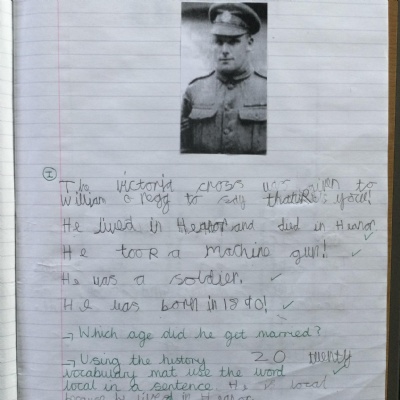 I
The victoria cross was given to
William Gregg to say thank you!
He lived in Heanor and died in Heanor
He took a machine gun!
He was a soldier.
He was born in 1890!
→ Which age did he get married?
→ Using the history 20 twenty
vocabulary mat use the word
local in a sentence. He is local
because he lived in Heanor